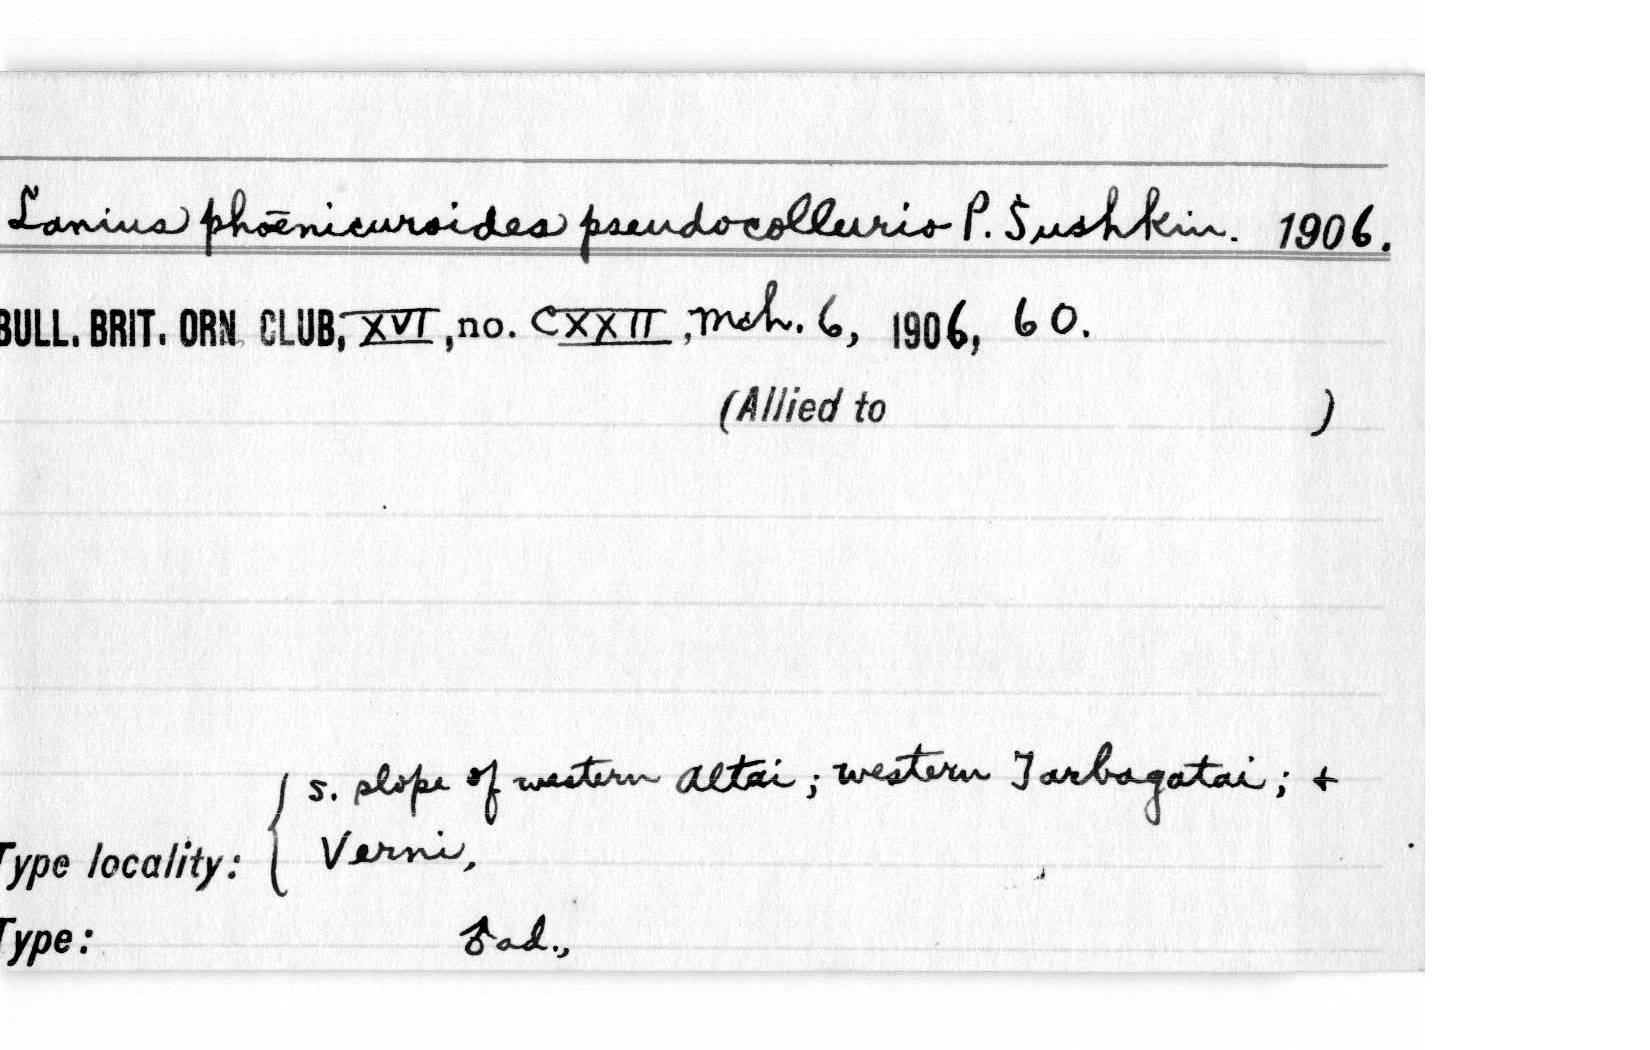 Lanius phœnicuroides pseudocollurio P. Sushkin. 1906.
BULL. BRIT. ORN. CLUB, XVI, no. CXXII, Mch. 6, 1906, 60.
(Allied to )
s. slope of western Altai; western Tarbagatai; +
Type locality: { Verni,
Type: ♂ ad.,